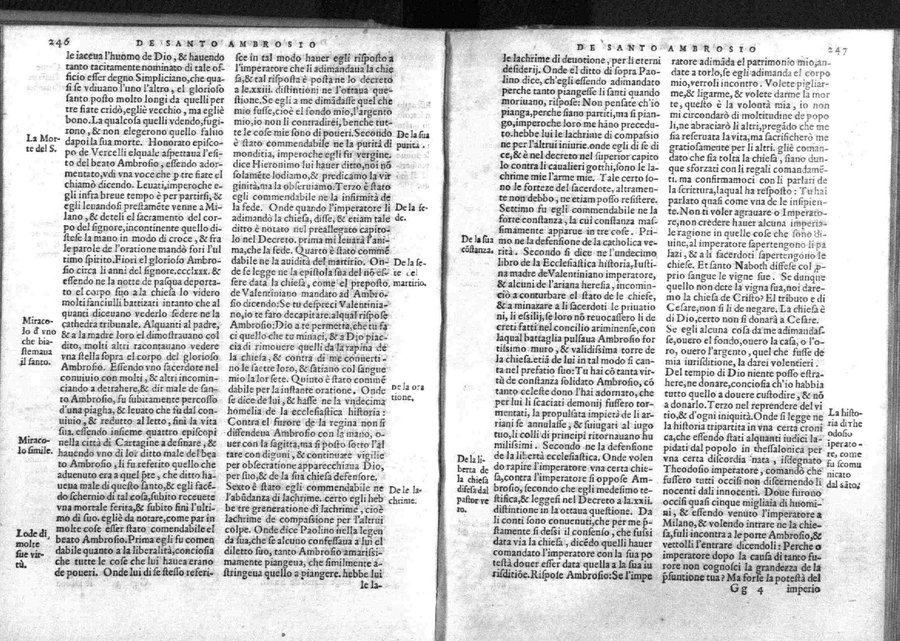 246
DE SANTO AMBROSIO
le iaceua l'huomo de Dio, & hauendo
tanto tacitamente nominato di tale of
ficio esser degno Simpliciano, che qua
si se vduiano l'uno l'altro, el glorioso
santo posto molto longi da quelli per
tre fiate cridò, eglie vecchio, ma egliè
bono. La qual cosa quelli vdendo, fugi
rono, & non elegerono quello saluo
dapoi la sua morte. Honorato episco-
po de Vercelli elquale aspettaua l'esi-
to del beato Ambrosio, essendo ador-
mentato, vdi vna voce che p tre fiate el
chiamò dicendo. Leuati, imperoche e-
gli infra breue tempo è per partirsi, &
egli leuandosi prestamēte venne a Mi-
lano, & deteli el sacramento del cor-
po del signore, incontinente quello di-
stese la mano in modo di croce, & fra
le parole de l'oratione mandò fori l'ul
timo spirito. Fiori el glorioso Ambro-
sio circa li anni del signore. ccclxxx. &
essendo ne la notte de pasqua deporta-
to el corpo suo a la chiesa lo videro
molti fanciulli battizati intanto che al
quanti diceuano vederlo sedere ne la
cathedra tribunale. Alquanti al padre,
& a la madre loro el dimostrauano col
dito, molti altri racontauano vedere
vna stella sopra el corpo del glorioso
Ambrosio. Essendo vno sacerdote nel
conuiuio con molti, & altri incomin-
ciando a dettrahere, & dir male de san-
to Ambrosio, fu subitamente percosso
d'una piagha, & leuato che fu dal con-
uiuio, & redutto al letto, finì la vita
sua. essendo insieme quattro episcopi
nella città di Cartagine a desinare, &
hauendo vno di loro ditto male del bea
to Ambrosio, li fu referito quello che
aduenuto era a quel pte, che ditto ha-
ueua male di questo santo, & egli facē-
do schernio di tal cosa, subito receuete
vna mortale ferita, & subito finì l'ulti-
mo di suo. egliè da notare, come par in
molte cose esser stato comendabile el
beato Ambrosio. Prima egli fu comen
dabile quanto a la liberalità, conciosia
che tutte le cose che lui hauea erano
de poueri. Onde lui di se stesso referi-
La Mor-
te del S.
Miraco-
lo d'vno
che bia-
stemaua
il santo.
Miraco-
lo simile.
Lode di
molte
sue vir-
tù.
sce in tal modo hauer egli risposto a
l'imperatore che li adimandaua la chie
sa, & tal risposta è posta ne lo decreto
a le. xxiii. distintioni ne l'ottaua que-
stione, Se egli a me dimādasse quel che
mio fusse, cioè el fondo mio, l'argento
mio, io non li contradirei, benche tut-
te le cose mie sono di poueri. Secondo
è stato commendabile ne la purità di
monditia, imperoche egli fu vergine.
dice Hieronimo lui hauer ditto, noi nō
solamēte lodiamo, & predicamo la vir
ginità, ma la obseruiamo. Terzo è stato
egli commendabile ne la infirmità de
la fede. Onde quando l'imperatore li
adimandò la chiesa, disse, & etiam tale
ditto è notato nel preallegato capito-
lo nel Decreto. prima mi leuarà l'ani-
ma, che la fede. Quarto è stato commē
dabile ne la auidità del martirio. On-
de se legge ne la epistola sua del nō es-
sere data la chiesa, come el preposto,
de Valentiniano mandato ad Ambro-
sio dicendo: Se tu despreci Valentinia-
no, io te faro decapitare. alqual rispose
Ambrosio: Dio a te permetta, che tu fa
ci quello che tu minaci, & a Dio piac-
cia di rimouere quelli da la rapina de
la chiesa, & contra di me conuerti-
no le saette loro, & satiano col sangue
mio la lor sete. Quinto è stato commē
dabile per la instante oratione. Onde
se dice de lui, & hasse ne la vndecima
homelia de la ecclesiastica historia:
Contra el furore de la regina non si
dissendeua Ambrosio con la mano, o-
uer con la sagitta, ma si posò sotto l'al
tare con digiuni, & continuate vigilie
per obsecratione apparecchiaua Dio,
per suo, & de la sua chiesa defensore.
Sexto è stato egli commendabile ne
l'abūdanza di lachrime. certo egli heb
be tre greneratione di lachrime, cioè
lachrime de compassione per l'altrui
colpe. Onde dice Paolino nella legen
da sua, che se alcuno confessaua a lui el
diletto suo, tanto Ambrosio amarissi-
mamente piangeua, che similmente a-
stringeua quello a piangere. hebbe lui
le la-
De la sua
purità.
De la fe-
de.
De la se-
te del
martirio.
De la ora
tione.
De le la-
chrime.
DE SANTO AMBROSIO
247
le lachrime di deuotione, per li eterni
desiderij. Onde el ditto di sopra Pao-
lino dice, ch'egli essendo adimandato
perche tanto piangesse li santi quando
moriuano, rispose: Non pensate ch'io
pianga, perche siano partiti, ma si pian-
go, imperoche loro me hāno precedu-
to. hebbe lui le lachrime di compassio
ne per l'altrui iniurie. onde egli di se di
ce, & è nel decreto nel superior capito
lo contra li cauallieri gotthi, sono le la-
chrime mie l'arme mie. Tale certo so-
no le forteze del sacerdote, altramen-
te non debbo, ne etiam posso resistere.
Settimo fu egli commendabile ne la
forte constanza, la cui constanza mas-
simamente apparue in tre cose. Pri-
mo ne la defensione de la catholica ve-
rità. Secondo si dice ne l'undecimo
libro de la Ecclesiastica historia, Iusti-
na madre de Valentiniano imperatore,
& alcuni de l'ariana heresia, incomin-
ciò a conturbare el stato de le chiese,
& a minazare a li sacerdoti le priuatio
ni, li essilij, se loro nō reuocassero li de
creti fatti nel concilio ariminense, con
laqual battaglia pulsaua Ambrosio for
tissimo muro, & validissima torre de
la chiesa. etiā de lui in tal modo si can-
ta nel prefatio suo: Tu hai cō tanta vir-
tù de constanza solidato Ambrosio, cō
tanto celeste dono l'hai adornato, che
per lui li scaciati demonij fussero tor-
mentati, la propulsata impietà de li ar
riani se annulasse, & suiugati al iugo
tuo, li colli di principi ritornaano hu
milissimi. Secondo ne la defensione
de la libertà ecclesiastica. Onde volen
do rapire l'imperatore vna certa chie-
sa, contra l'imperatore si oppose Am-
brosio, secondo che egli medesimo te-
stifica, & leggesi nel Decreto a la. xxii.
distintione in la ottaua questione. Da
li conti sono conuenuto, che per me p-
stamente si desi il consenso, che fussi
data via la chiesa, dicēdo quelli hauer
comandato l'imperatore con la sua po
testà douer esser data quella a la sua iu
risditiōe. Rispose Ambrosio: Se l'impe
De la sua
costanza.
De la li-
berta de
la chiesa
difesa dal
pastor ve
ro.
ratore adimāda el patrimonio mio, an-
date a torlo, se egli adimanda el corpo
mio, verroli incontro. Volete pigliar-
me, & ligarme, & volete darme la mor
te, questo è la volontà mia, io non
mi circondarò di moltitudine de popo
li, ne abraciarò li altri, pregādo che ma
sia reseruata la vita, ma sacrificherò me
gratiosamente per li altri. gliè comanda
to che sia tolta la chiesa, siano dun-
que sforzati con li regali comandamē-
ti. ma confirmamoci con li parlari de
la scrittura, laqual ha resposto: Tu hai
parlato quasi come vna de le insipien-
te. Non ti voler agrauare o Imperato-
re, non credere hauer alcuna imperia-
le ragione in quelle cose che sono di-
uine, al imperatore sapertengono li pa
lazi, & a li sacerdoti sapertengono le
chiese. Et santo Naboth diffese col p
prio sangue le vigne sue. Se dunque
quello non dete la vigna sua, noi dare-
mo la chiesa de Cristo? El tributo e di
Cesare, non si li de negare. La chiesa è
di Dio, certo non si donarà a Cesare.
Se egli alcuna cosa da me adimandas-
se, ouero el fondo, ouero la casa, o l'o-
ro, ouero l'argento, quel che fusse de
mia iurisditione, la darei volentieri.
Del tempio di Dio niente posso estra-
here, ne donare, conciosia ch'io habbia
tutto quello a douere custodire, & nō
a donarlo. Terzo nel reprendere del vi
tio, & d'ogni iniquità. Onde si legge ne
la historia tripartita in vna certa croni
ca, che essendo stati alquanti iudici la-
pidati dal popolo in thessalonica per
vna certa discordia nata, isdegnato
Theodosio imperatore, comandò che
fussero tutti occisi non discernendo li
nocenti dali innocenti. Doue furono
occisi quasi cinque migliaia di huomi-
ni, & essendo venuto l'imperatore a
Milano, & volendo intrare ne la chie-
sa, fuli incontra a le porte Ambrosio, &
vettoli l'entrare dicendoli: Perche o
imperatore dopo la causa di tanto fu-
rore non cognosci la grandezza de la
psuntione tua? Ma forse la potestà del
Gg 4 imperio
La histo-
ria di The
odosio
iperato-
re, come
fu scomu
nicato
dal sāto.